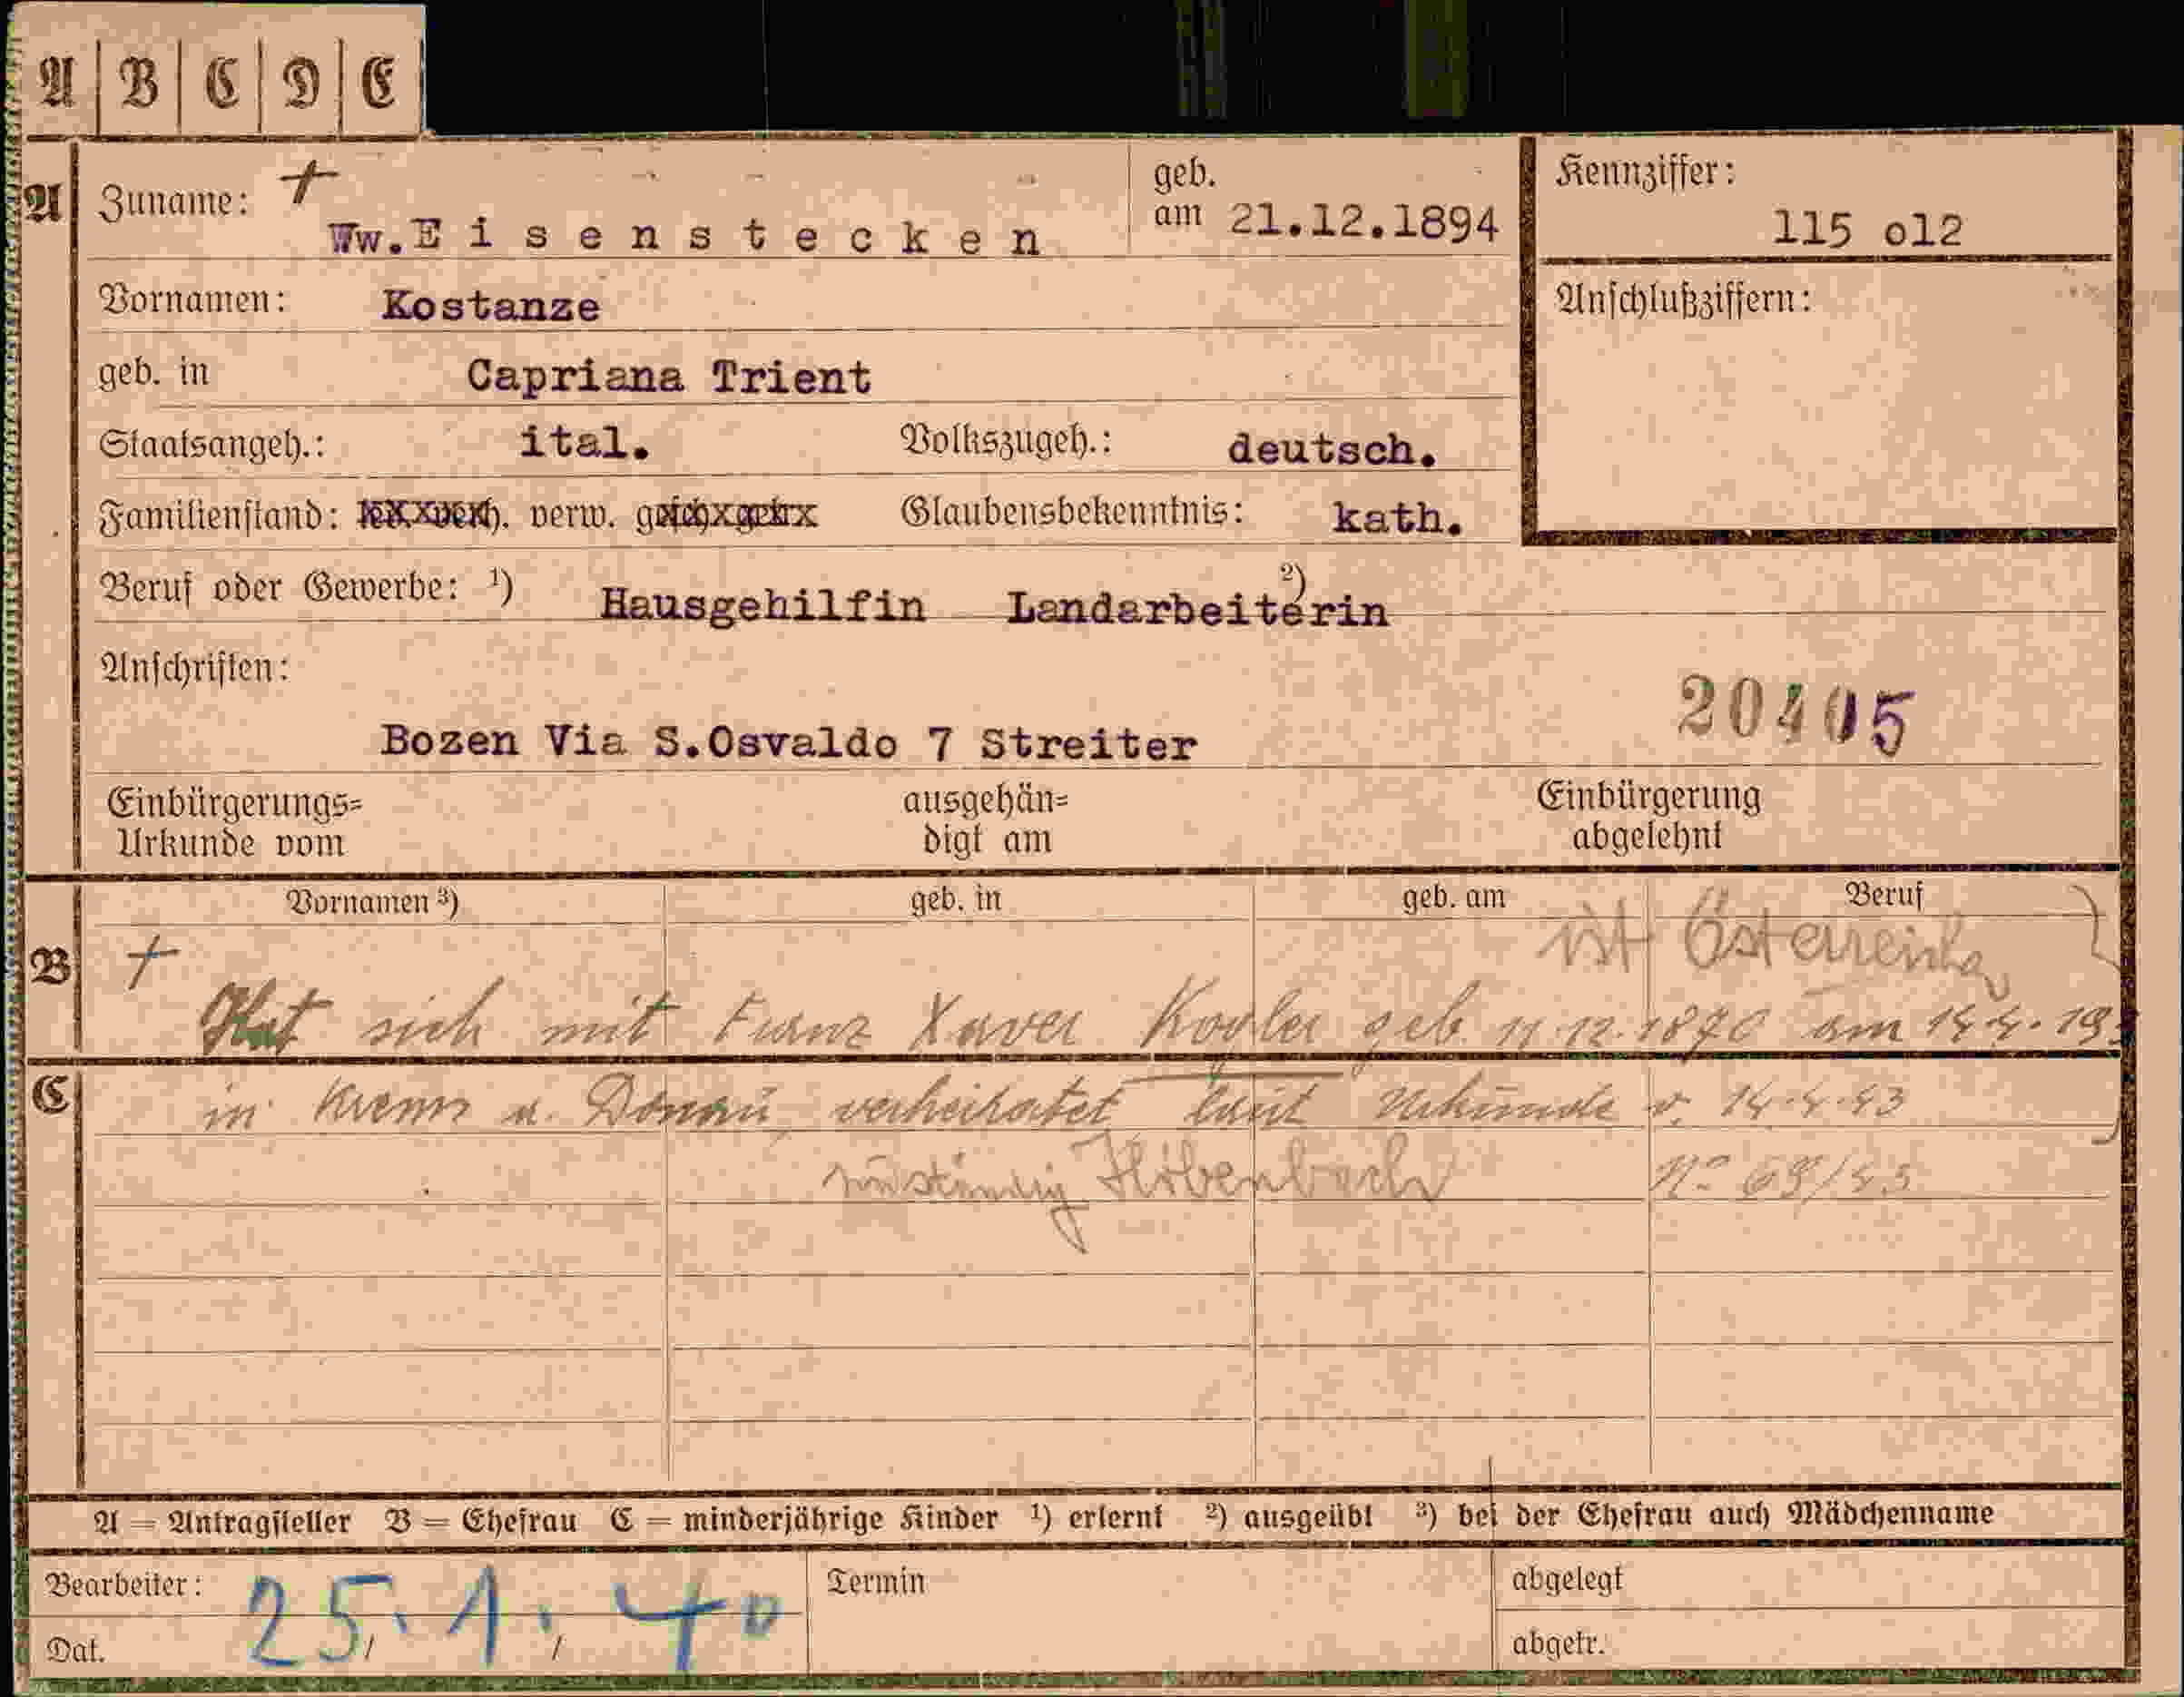 A B C D E
A Zuname: + Ww. Eisenstecken geb. am 21.12.1894 Kennziffer: 115 o12
Vornamen: Kostanze Anschlußziffern:
geb. in Capriana Trient
Staatsangeh.: ital. Volkszugeh.: deutsch.
Familienstand: verw. Glaubensbekenntnis: kath.
Beruf oder Gewerbe: ¹) Hausgehilfin ²) Landarbeiterin
Anschriften:
20405
Bozen Via S.Osvaldo 7 Streiter
Einbürgerungs= ausgehän= Einbürgerung
Urkunde vom digt am abgelehnt
Vornamen ³) geb. in geb. am Beruf
B + ist
Hat sich mit Franz Xaver Kogler geb. 11.12.1870 am 14.4.19
C in Krems a. Donau, verheiratet laut Urkunde v. 14.4.43
zuständig No 69/43
A = Antragsteller B = Ehefrau C = minderjährige Kinder ¹) erlernt ²) ausgeübt ³) bei der Ehefrau auch Mädchenname
Bearbeiter: Termin abgelegt
Dat. 25.1.40 abgetr.